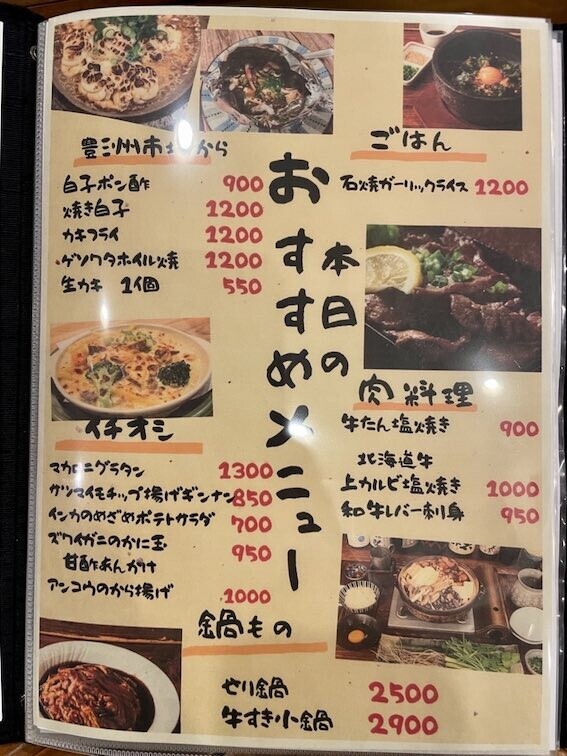 本日の
おすすめメニュー
豊洲市場から
白子ポン酢 900
焼き白子 1200
カキフライ 1200
ゲソワタホイル焼 1200
生カキ 1個 550
ごはん
石焼ガーリックライス 1200
肉料理
牛たん塩焼き 900
北海道牛
上カルビ塩焼き 1000
和牛レバー刺身 950
イチオシ
マカロニグラタン 1300
サツマイモチップ揚げギンナン 850
インカのめざめポテトサラダ 700
ズワイガニのかに玉
甘酢あんかけ 950
アンコウのから揚げ 1000
鍋もの
せり鍋 2500
牛すき小鍋 2900